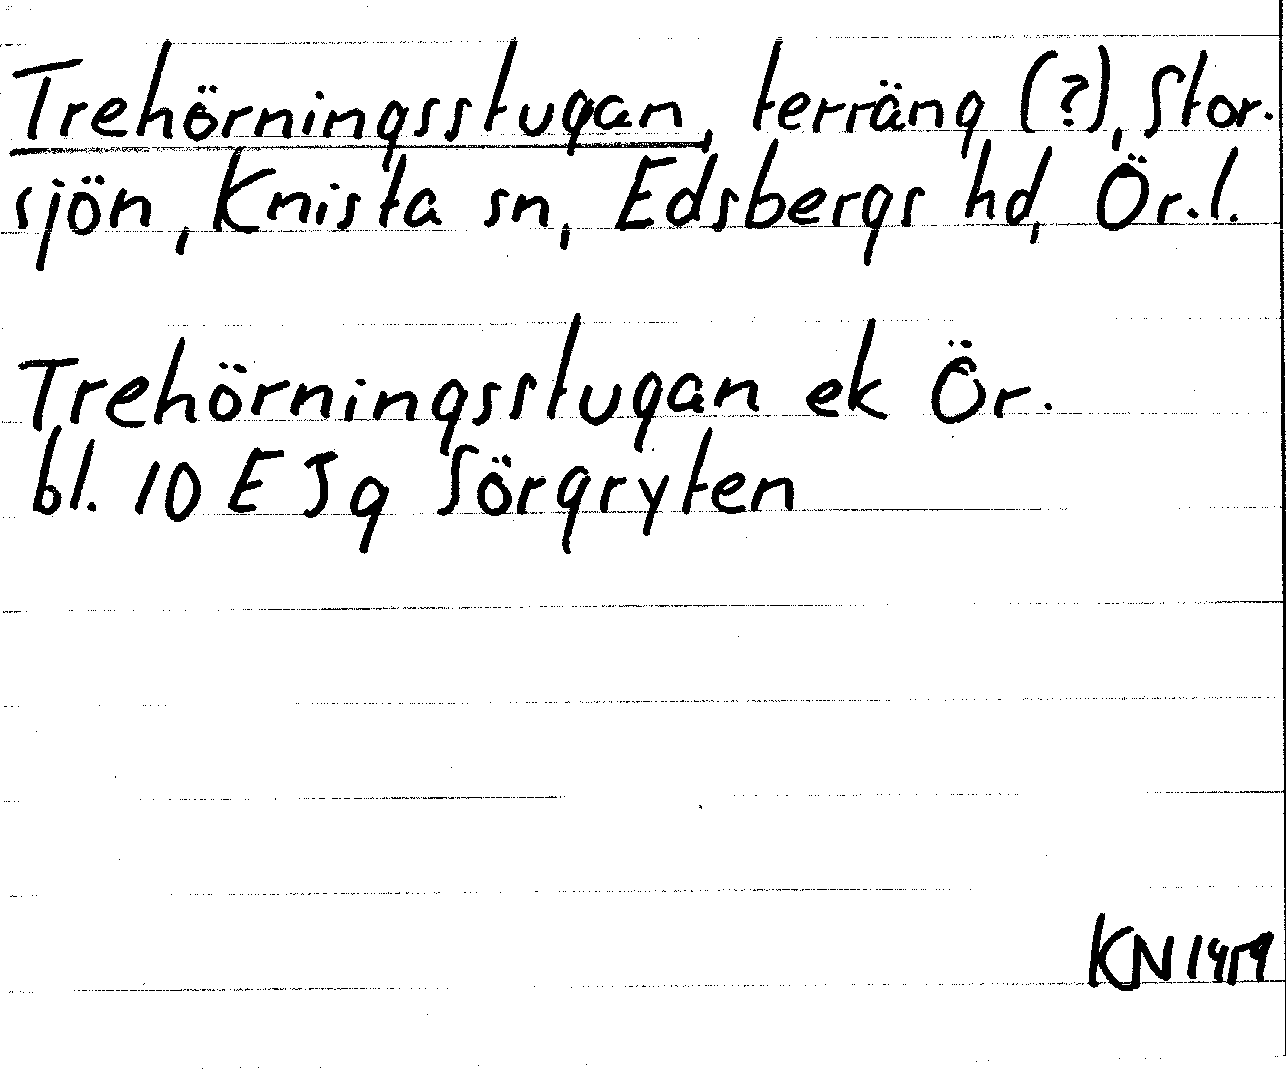 Trehörningsstugan, terräng (?), Stor-
sjön, Knista sn, Edsbergs hd, Ör.l.
Trehörningsstugan ek Ör.
bl. 10 E 5g Sörgryten
KN 1959